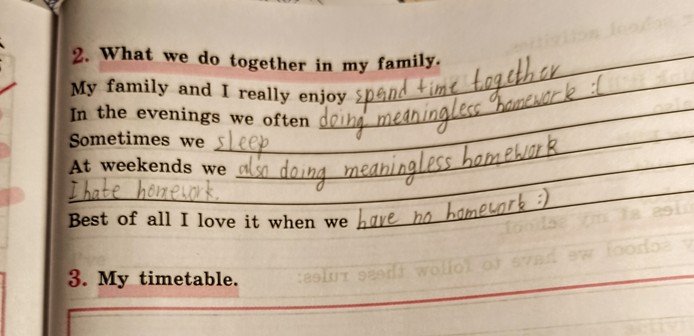 2. What we do together in my family.
My family and I really enjoy spend time together
In the evenings we often doing meaningless homework :(
Sometimes we sleep
At weekends we also doing meaningless homework
I hate homework.
Best of all I love it when we have no homework :)
3. My timetable.